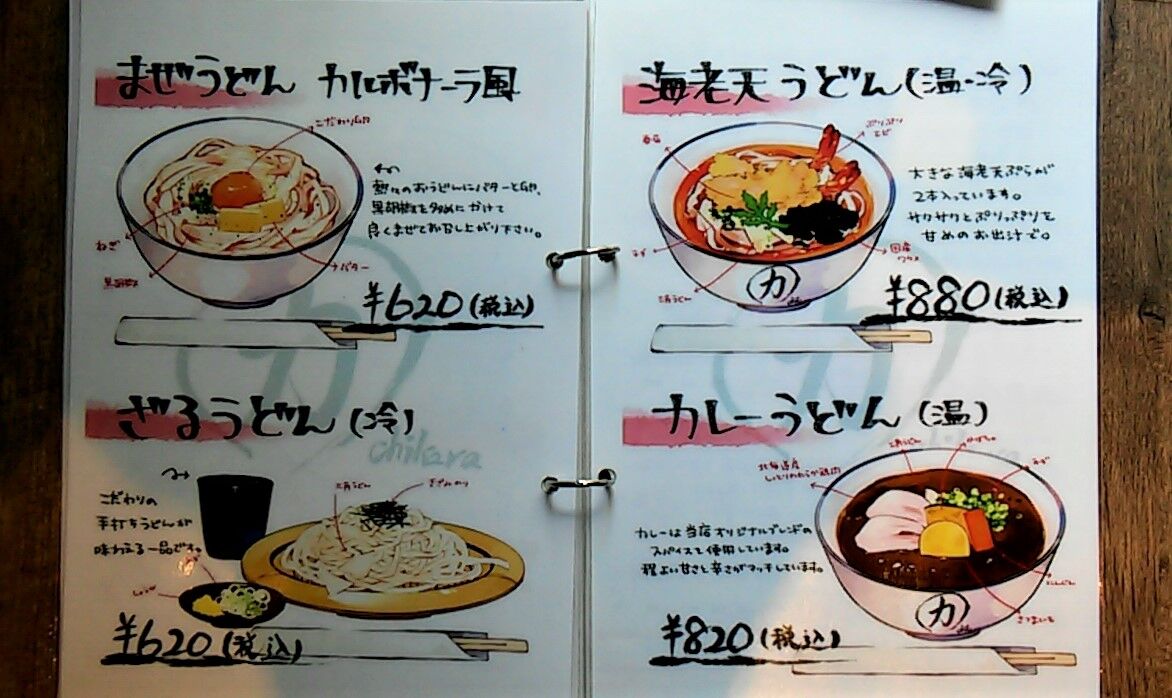 まぜうどん カルボナーラ風
こだわり卵
熱々のおうどんにバターと卵、
黒胡椒を多めにかけて
良くまぜてお召し上がり下さい。
ねぎ
黒胡椒
バター
¥620(税込)
ざるうどん(冷)
chikara
こだわりの
手打ちうどんが
味わえる一品です。
きざみのり
しょうが
¥620(税込)
海老天うどん(温・冷)
ぷりぷり
エビ
大きな海老天ぷらが
2本入っています。
サクサクとぷりっぷりで
甘めのお出汁で。
ねぎ
国産
ワカメ
力
¥880(税込)
カレーうどん(温)
ねぎ
北海道産
カレーは当店オリジナルブレンドの
スパイスを使用しています。
程よい甘さと辛さがマッチしています。
にんじん
さつまいも
力
¥820(税込)